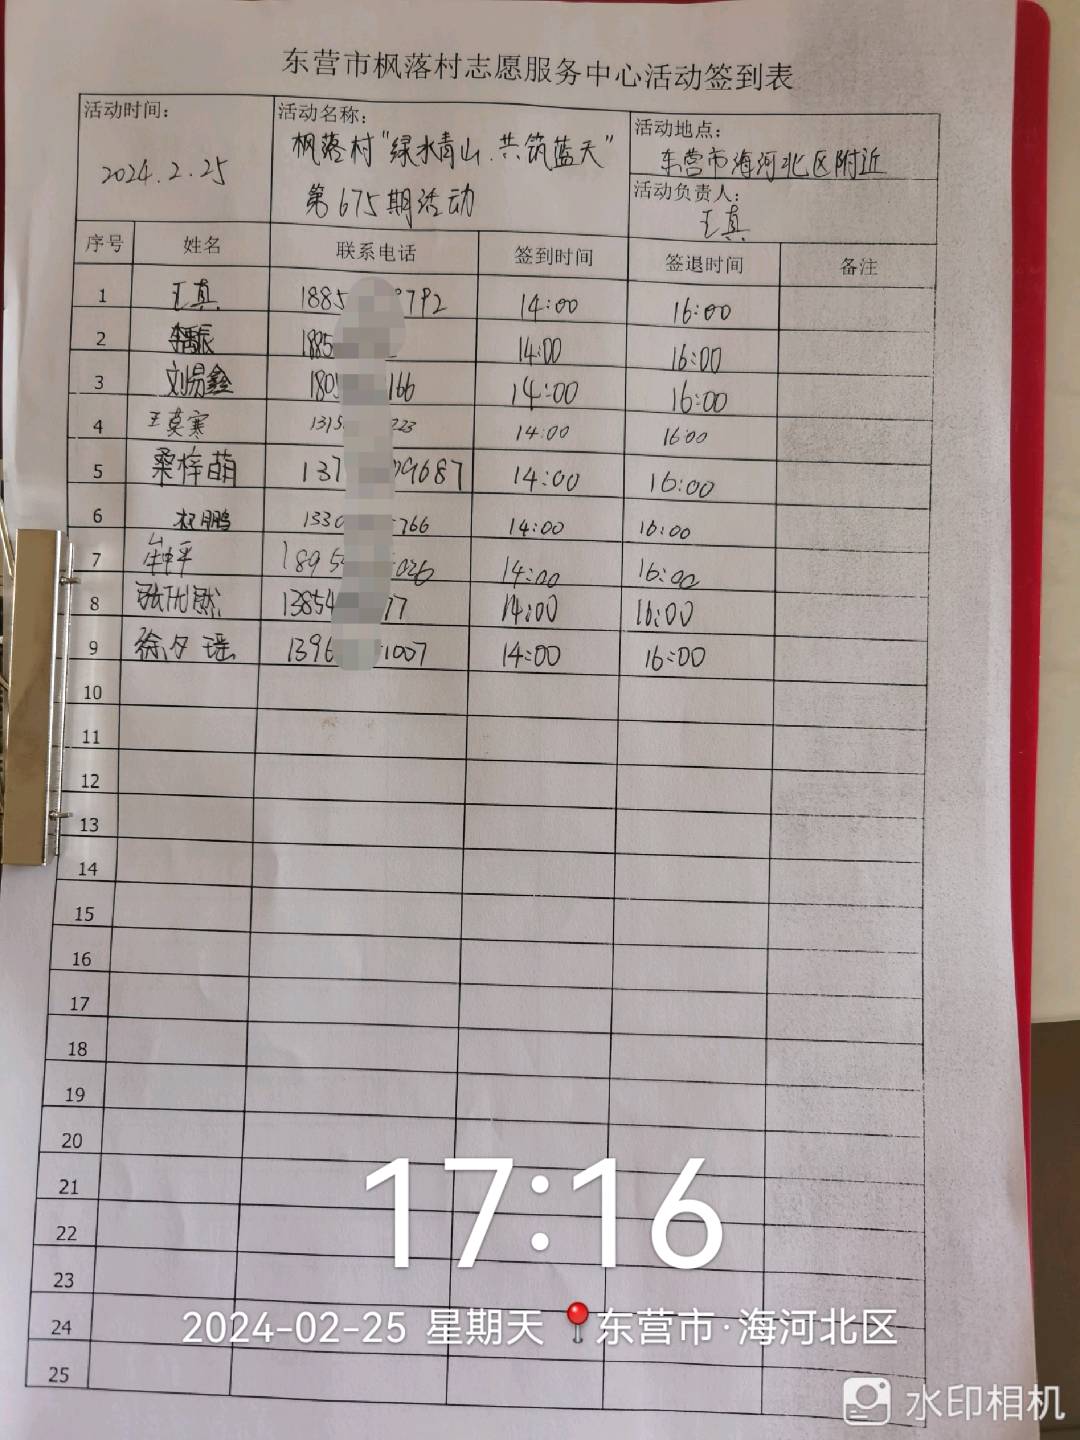 东营市枫落村志愿服务中心活动签到表
活动时间：
2024.2.25
活动名称：
枫落村“绿水青山.共筑蓝天”
第675期活动
活动地点：
东营市海河北区附近
活动负责人：
王真
序号 姓名 联系电话 签到时间 签退时间 备注
1 王真 1885 792 14:00 16:00
2 1885 14:00 16:00
3 刘易鑫 180 166 14:00 16:00
4 王莫寒 1315 223 14:00 16:00
5 桑梓萌 137 9687 14:00 16:00
6 权鹏 1330 766 14:00 16:00
7 1895 026 14:00 16:00
8 13854 77 14:00 16:00
9 徐夕瑶 1396 1007 14:00 16:00
10
11
12
13
14
15
16
17
18
19
20
21
22
23
24
25
17:16
2024-02-25 星期天 东营市·海河北区
水印相机